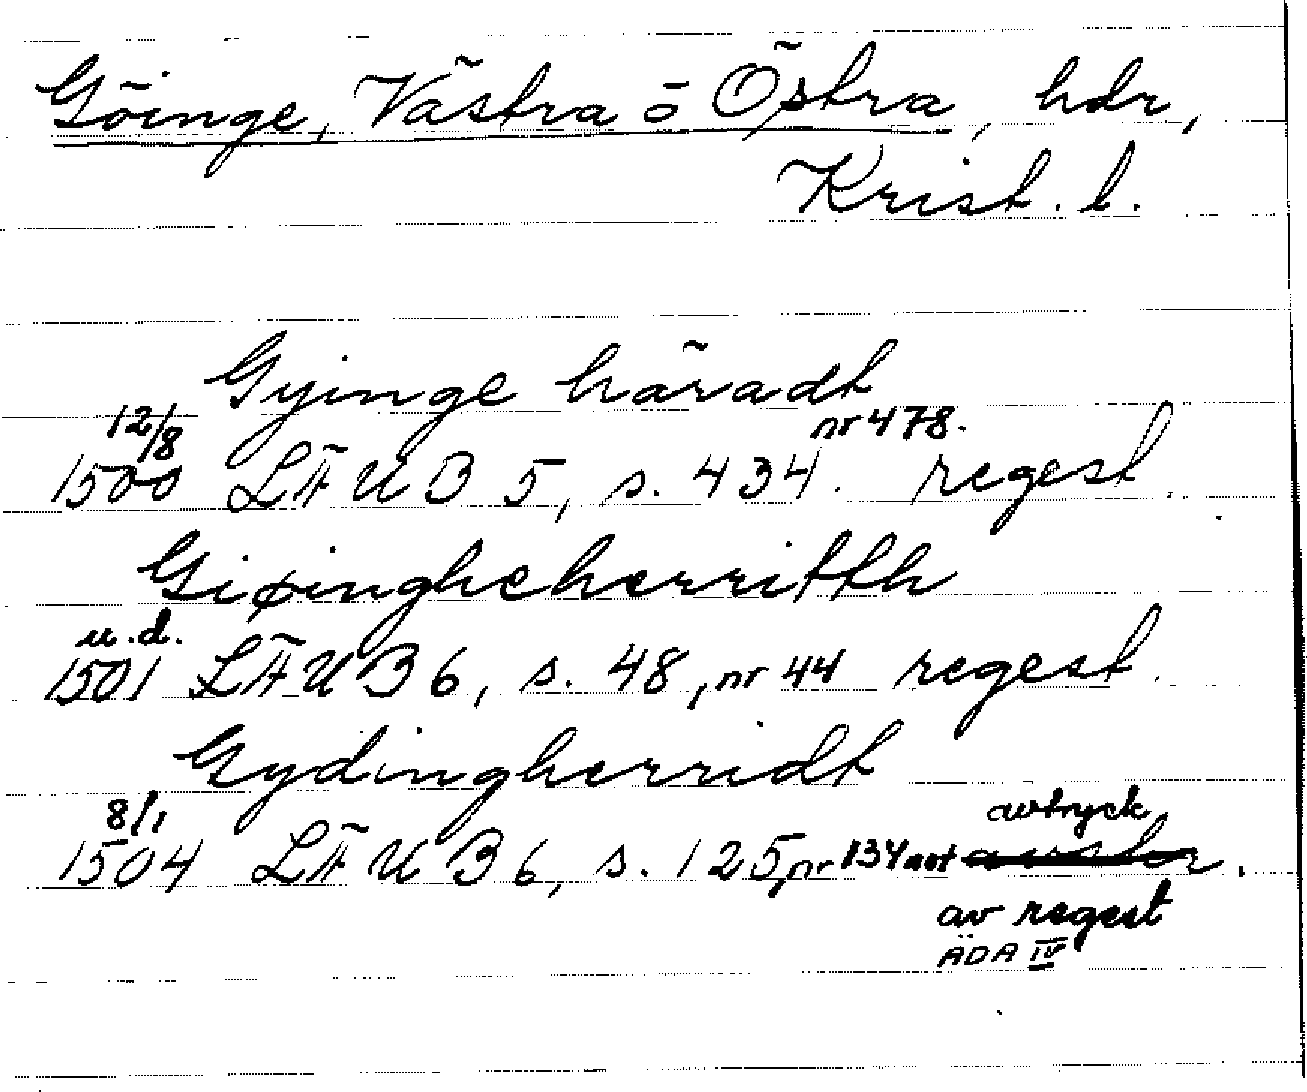 Göinge, Västra o Östra, hdr,
Krist. l.
Gyinge häradt
12/8 nr 478.
1500 LÄUB 5, s. 434. regest.
Giøingheherritth
u.d.
1501 LÄUB 6, s. 48, nr 44 regest.
Gydingherridt
8/1 avtryck
1504 LÄUB 6, s. 125, nr 134 not .
av regest
ÄDA IV